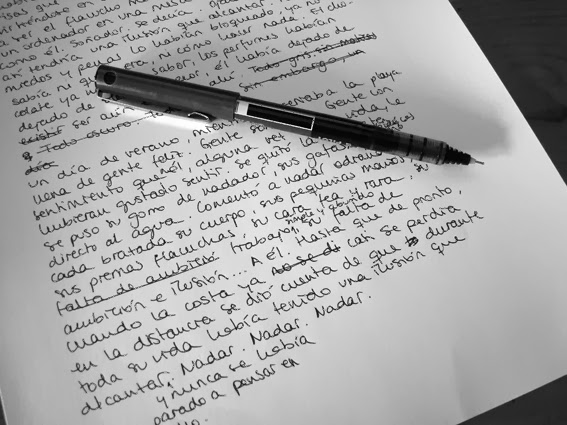 isas que
virtiéndo en
a ser el flaucho
un ordenador en una mesa
como él. Soñador, se decía
aún tendría una ilusión que alcanzar.
miedos y lo habían bloqueado ya no
sabía ni qué era, ni cómo hacer nada. El cho-
colate ya no sabor, los perfumes habían
dejado de él había dejado de
existir ser allí. Todo gris sin matices
y Todo oscuro. sin embargo, un
día
un día de verano, la playa
llena de gente feliz. Gente Gente con
sentimiento que él, alguna vez vida, le
hubieran gustado sentir. Se quitó la
se puso su gorro de nadador, sus gafas
directo al agua. Comenzó a nadar odiando
cada brazada su cuerpo, sus pequeñas manos
sus piernas flauchas, su cara fea y rara, su
falta de ambición trabajo simple y aburrido, su falta de
ambición e ilusión... A él. Hasta que de pronto,
cuando la costa ya no se di casi se perdía
en la distancia se dió cuenta de que durante
toda su vida había tenido una ilusión que
alcanzar. Nadar. Nadar. Nadar.
y nunca se había
parado a pensar en